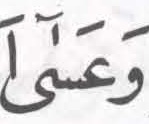 وَعَسَىٰٓ أَ